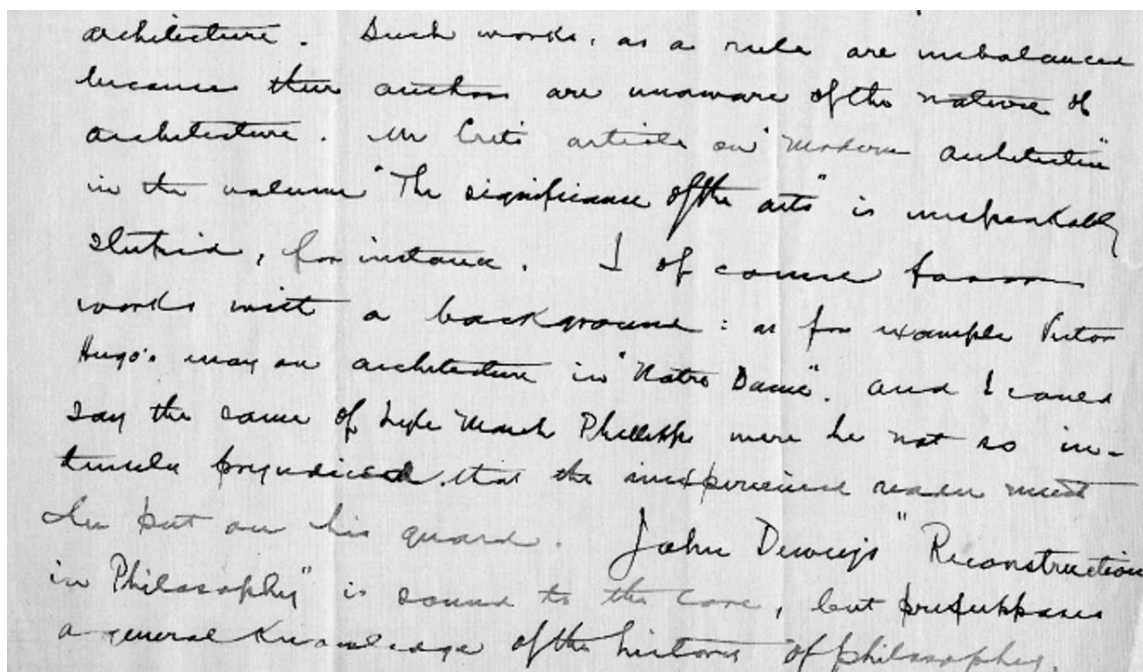 architecture. Such works, as a rule are unbalanced
because their authors are unaware of the nature of
architecture. Mr Cret's article on "Modern Architecture"
in the volume "The significance of the arts" is unspeakably
stupid, for instance. I of course favor
works with a background: as for example Victor
Hugo's essay on architecture in "Notre Dame". And I could
say the same of Lisle March Phillipps were he not so in-
tensely prejudiced, that the inexperienced reader must
be put on his guard. John Dewey's "Reconstruction
in Philosophy" is sound to the core, but presupposes
a general knowledge of the history of philosophy